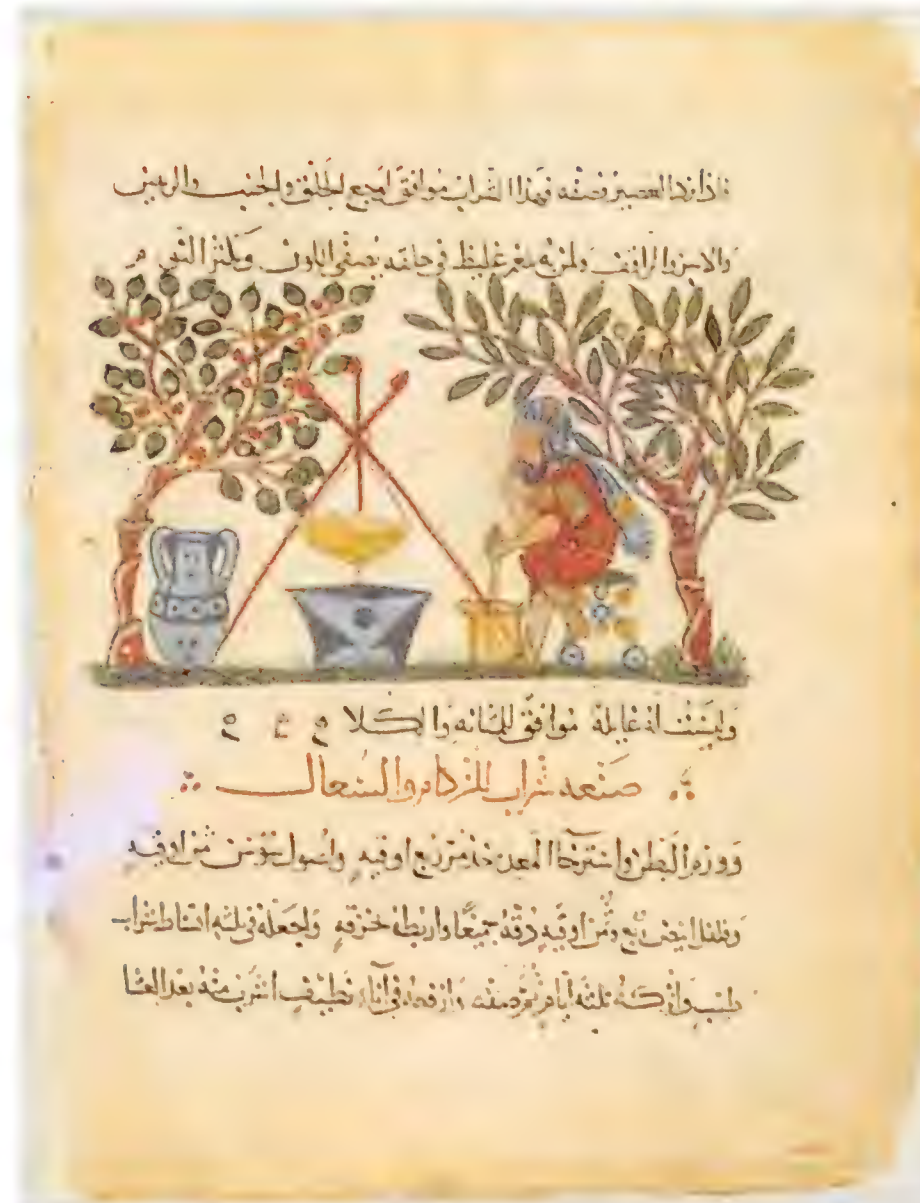 فاذا برد العصير فصفه فهذا الشراب موافق لوجع الحلق والجنب والريتين
والابن ولمن به بلغم غليظ في حلقه يصفي اللون ويلين
وليست له غايلة موافق للمثانه والكلا
صنعه شراب للزكام والسعال
وورم البطن واسترخا المعده خذ مر ربع اوقيه واصول سوسن ثمن اوقيه
وفلفل ابيض ربع وثمن اوقيه دقه جميعا واربطه بخرقه واجعله في ثلثه اقساط شراب
طيب واتركه ثلثه ايام ثم صفه وارفعه في اناء نظيف اشرب منه بعد العشا